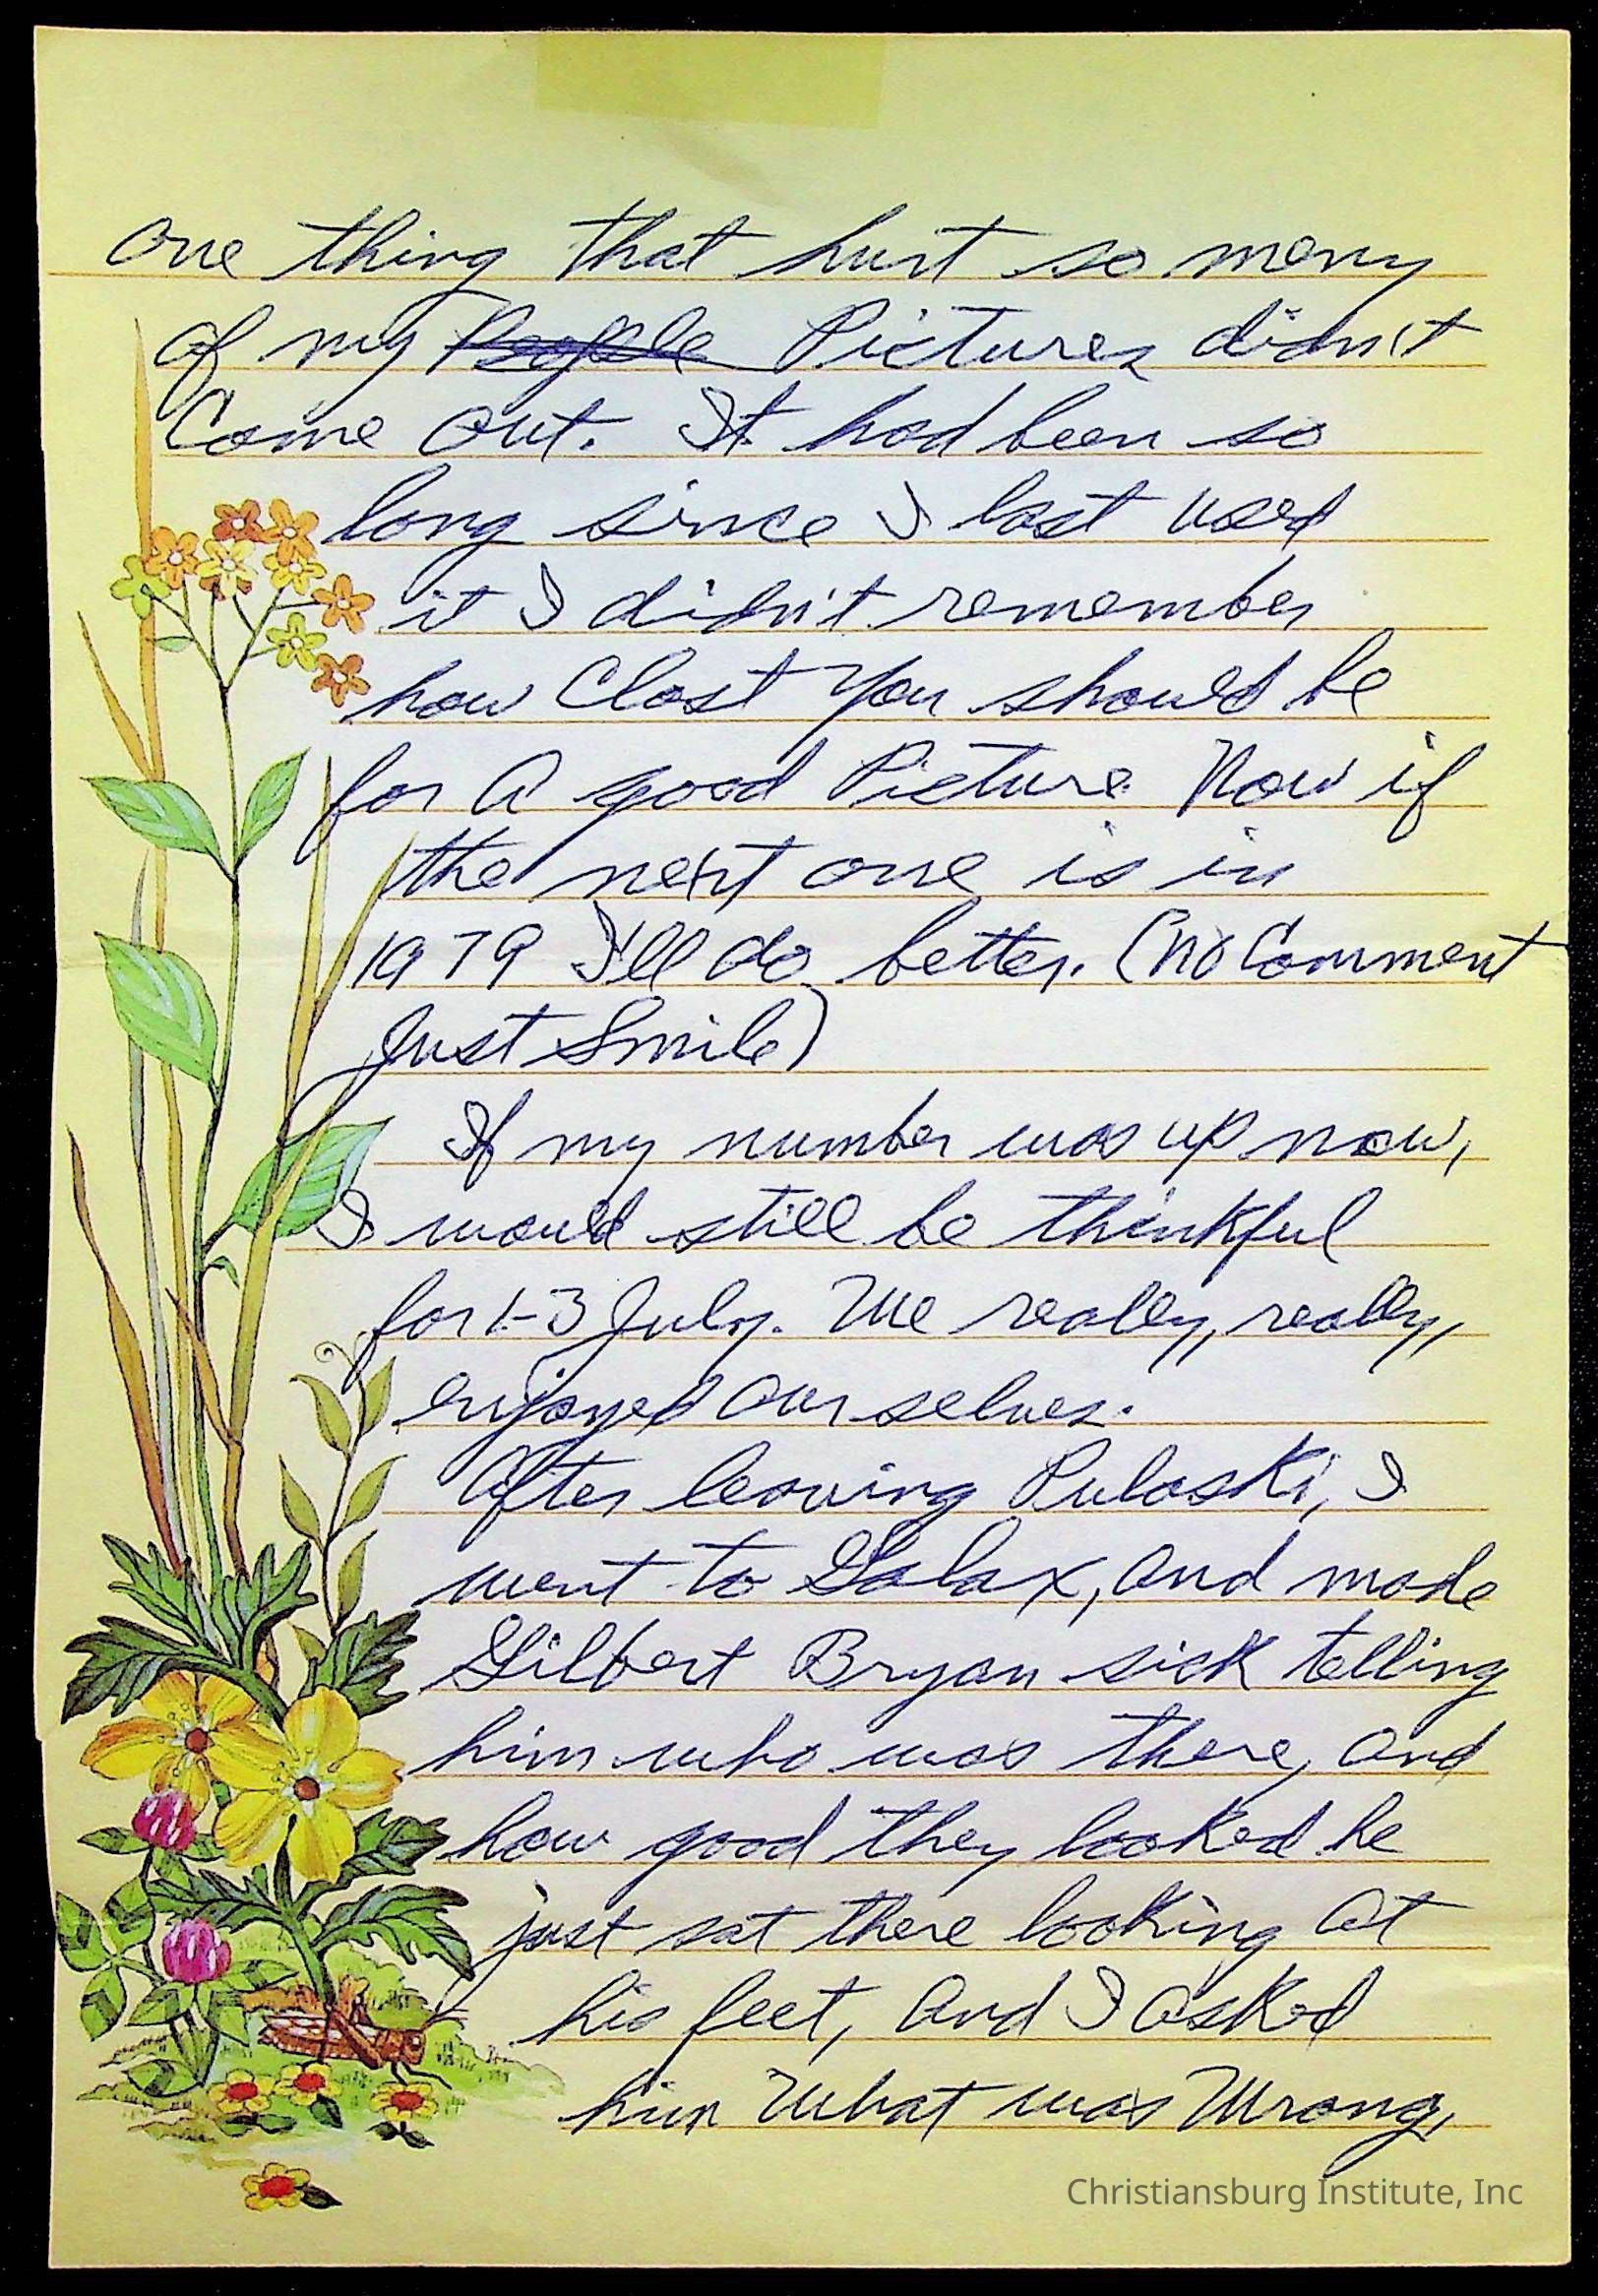 One thing that hurt so many
of my People Pictures didn't
Come out. It had been so
long since I last used
it I didn't remember
how Clost you should be
for A good Picture. Now if
the next one is in
1979 I'll do better. (No Comment
Just Smile)
If my number was up now,
I would still be thinkful
for 1-3 July. We really, really,
enjoyed ourselves.
After leaving Pulaski, I
went to Galax, and made
Gilbert Bryan sick telling
him who was there, and
how good they looked he
just sat there looking at
his feet, and I asked
him What was Wrong,
Christiansburg Institute, Inc